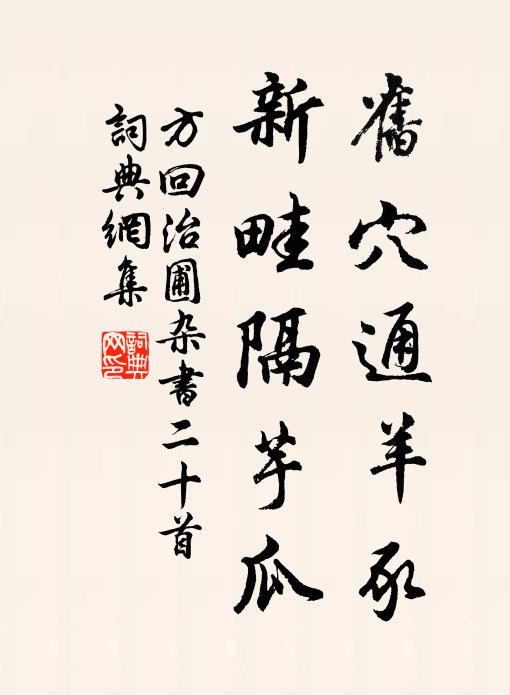 舊穴通羊豕
新畦隔芋瓜
方回治圃杂書二十首
詞典網集
詞典網印